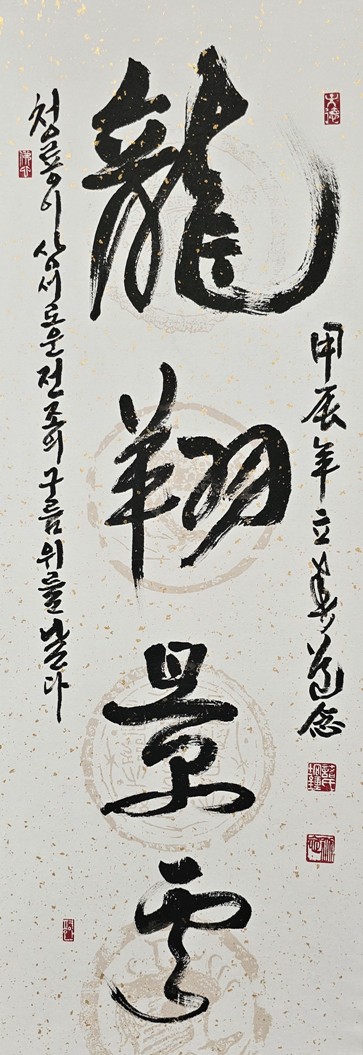 龍翔景雲
청룡이 상서로운 전조의 구름위를 날다
甲辰年立春道念